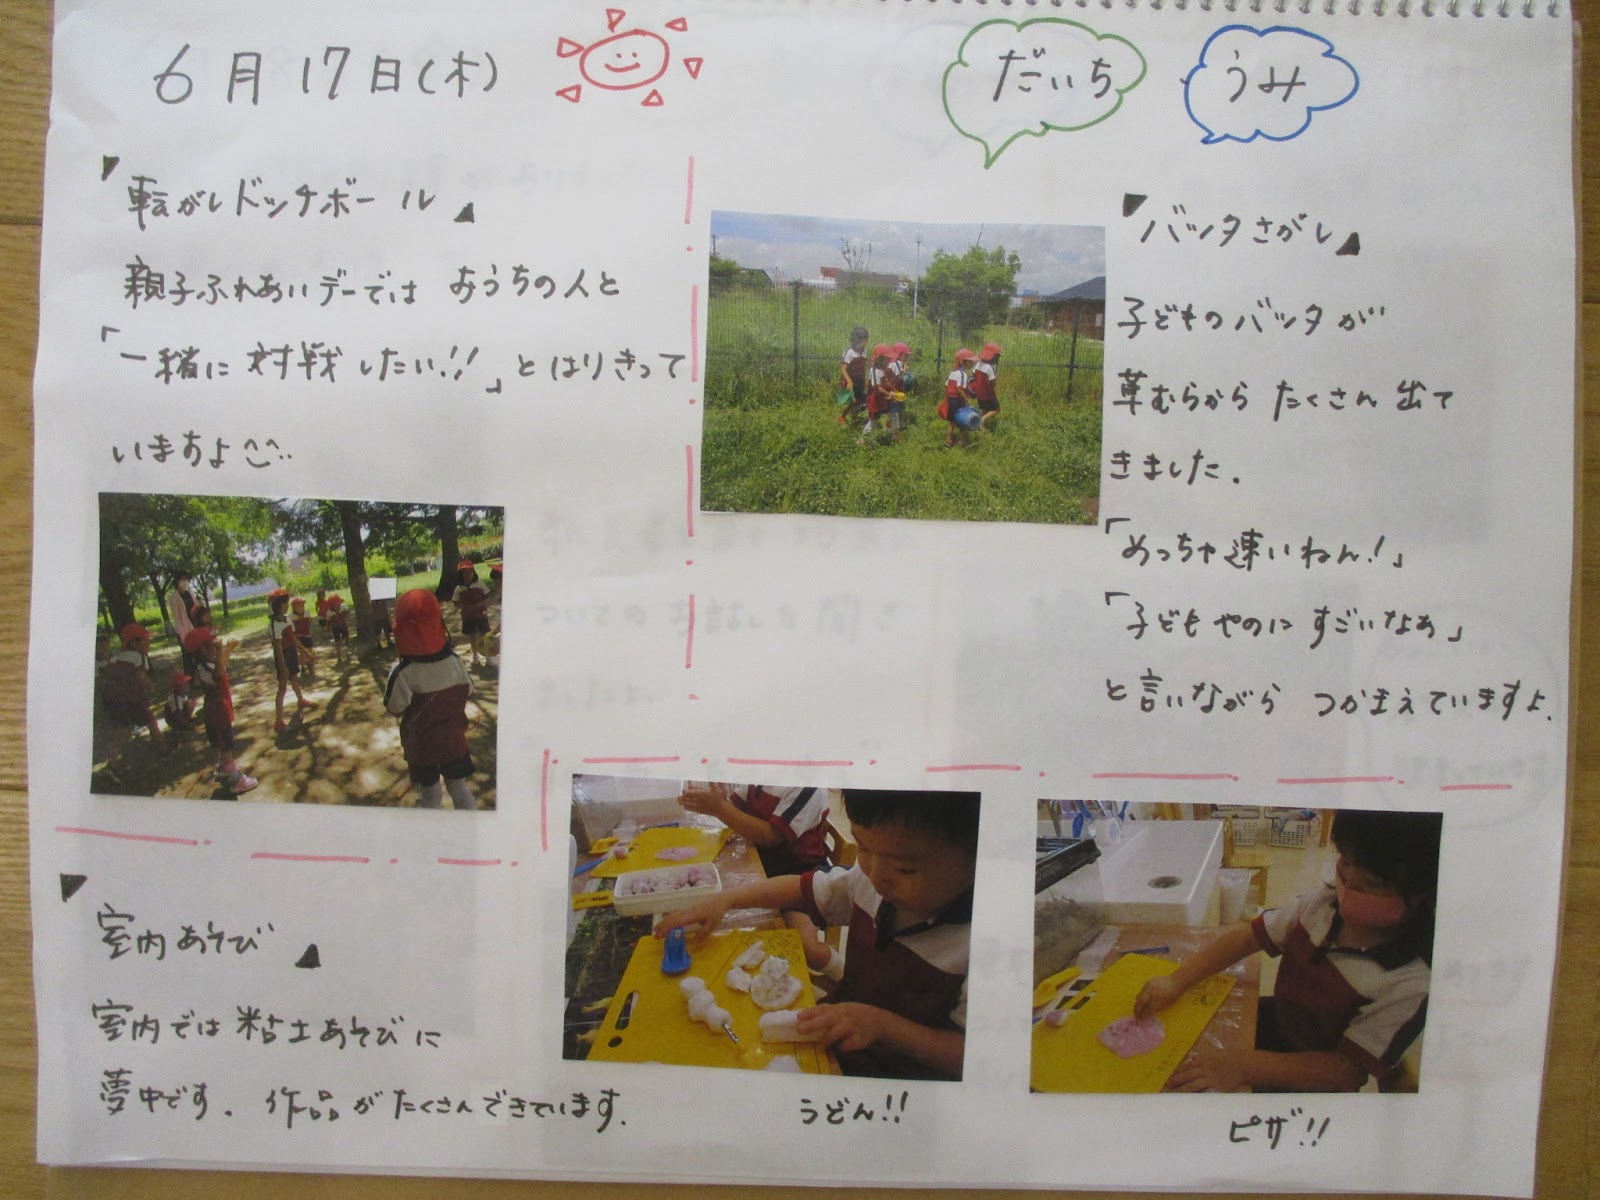 6月17日(木)
だいち
うみ
転がしドッチボール
親子ふれあいデーでは おうちの人と
「一緒に対戦したい!!」とはりきって
いますよ^^
バッタさがし
子どものバッタが
草むらから たくさん出て
きました.
「めっちゃ速いねん!」
「子どもやのに すごいなぁ」
と言いながら つかまえていますよ.
室内あそび
室内では粘土あそびに
夢中です. 作品がたくさんできています.
うどん!!
ピザ!!